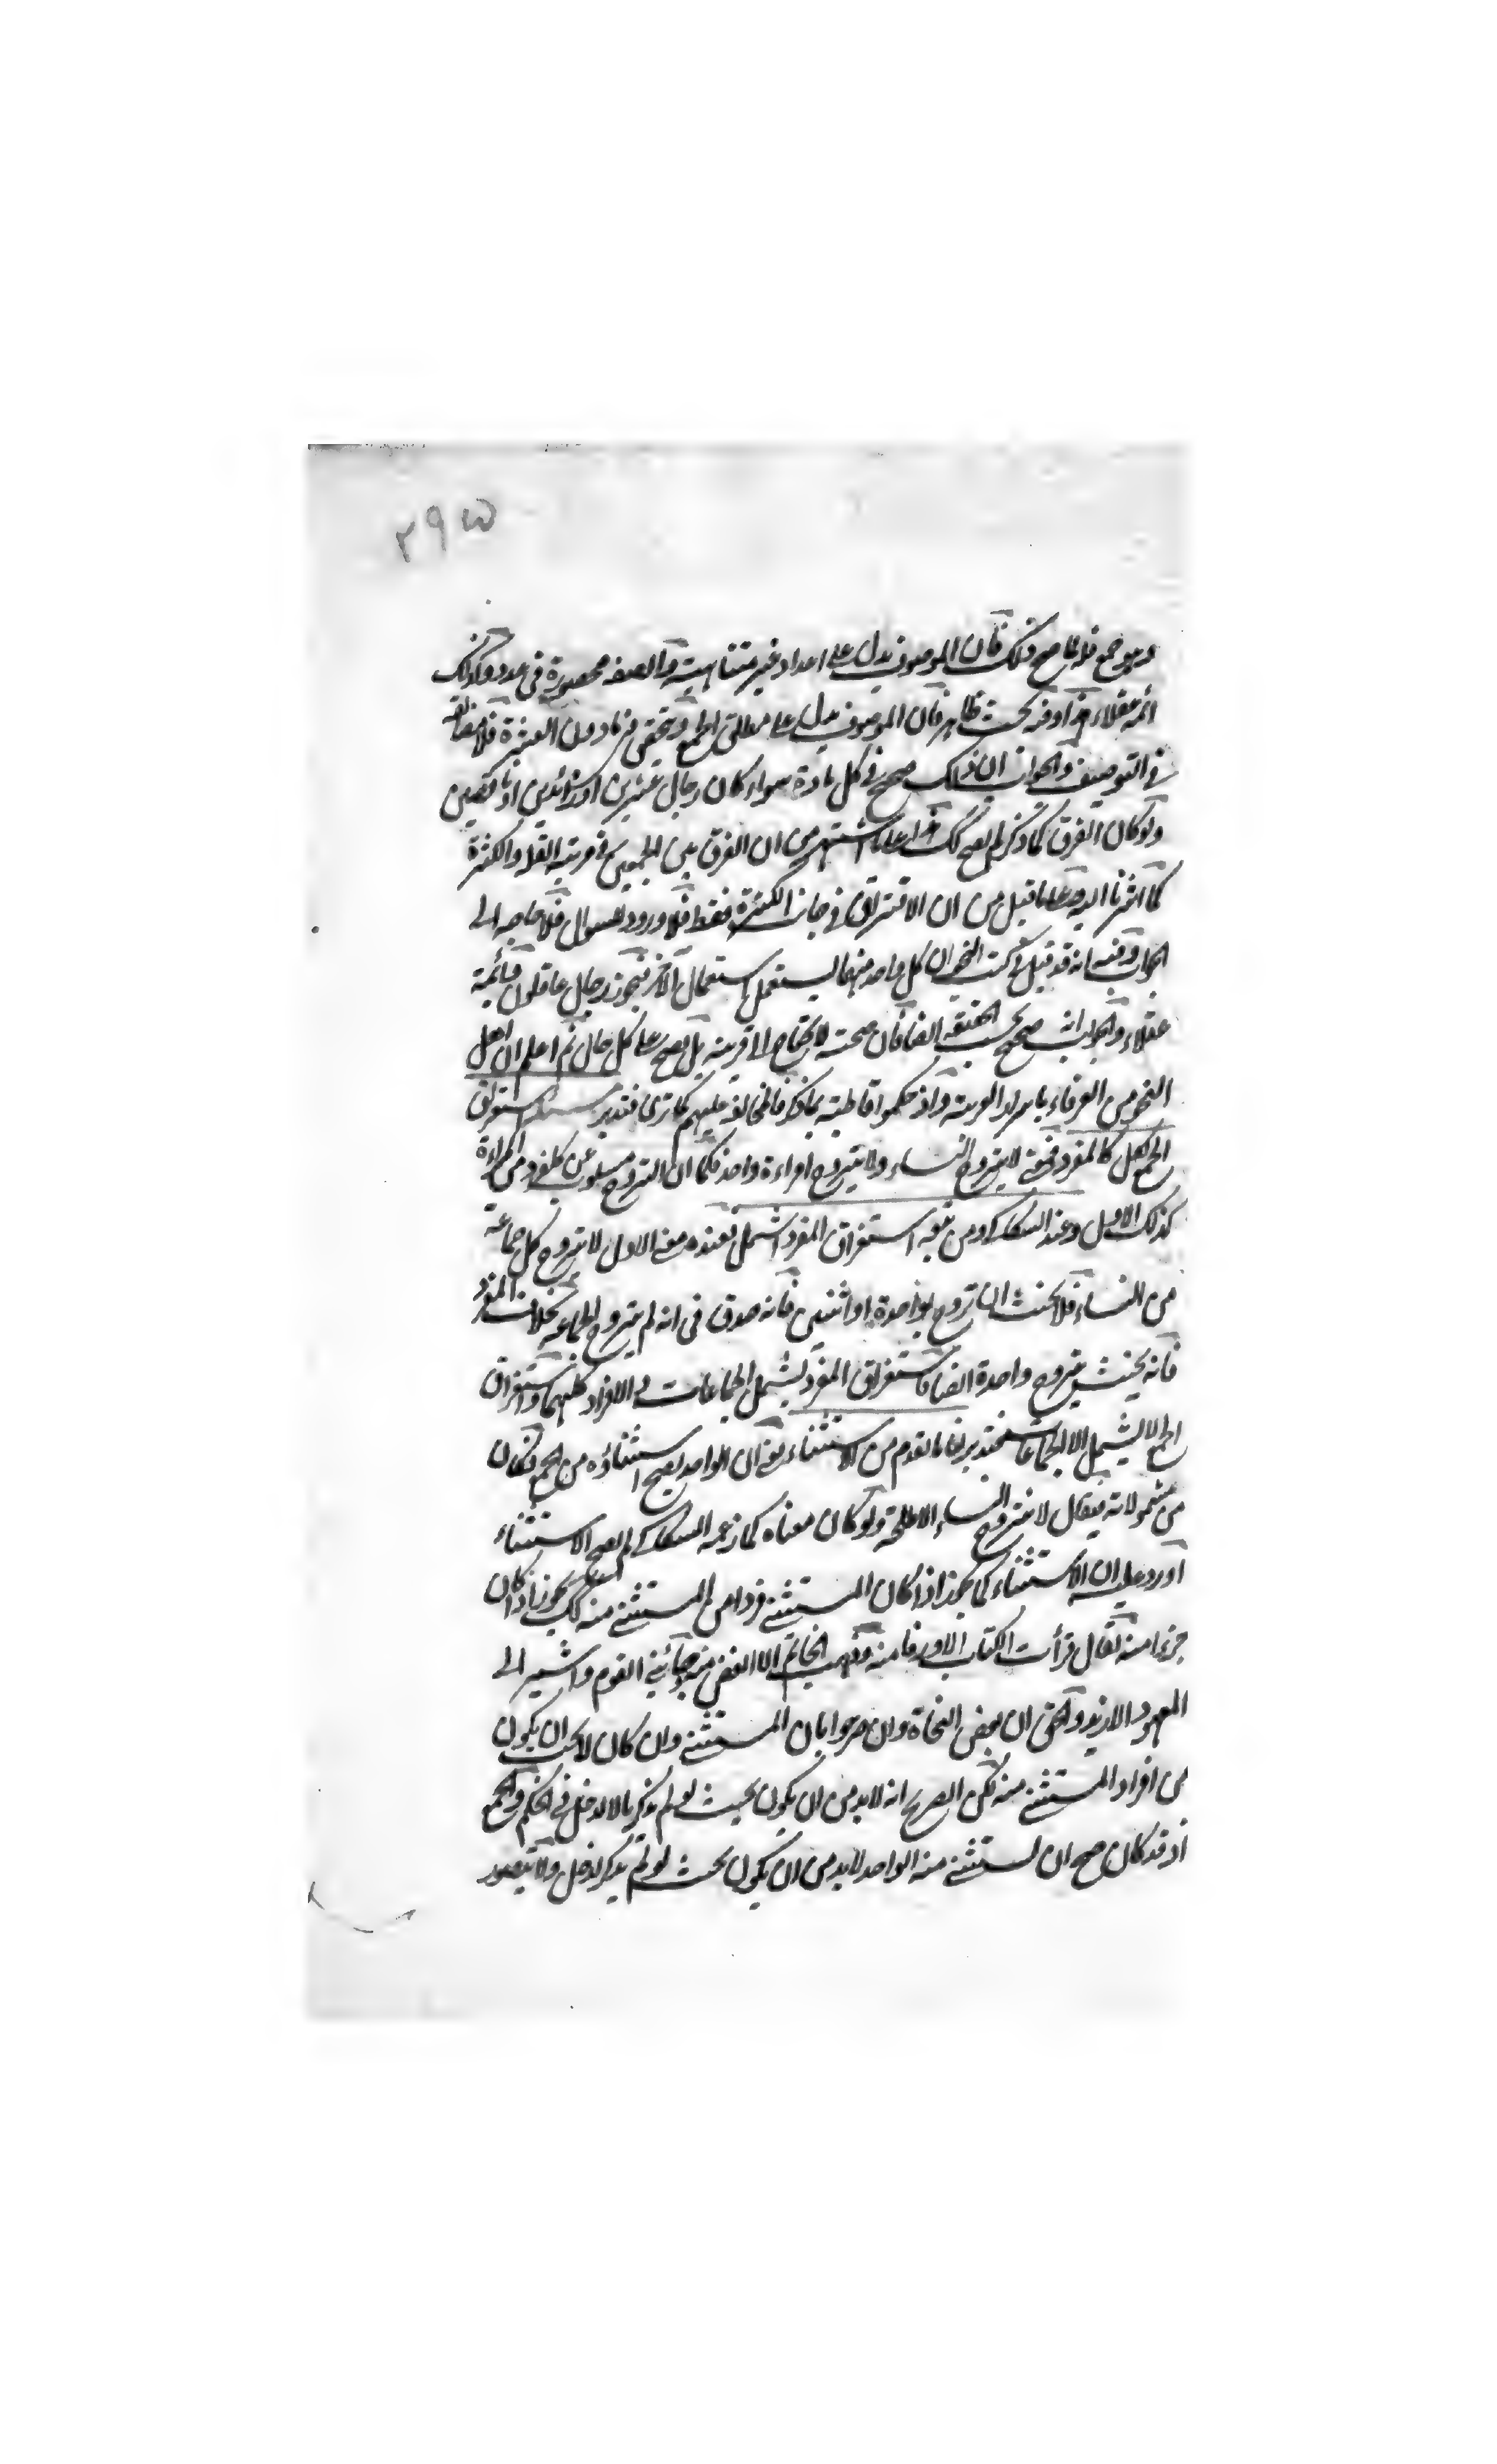 ٢٩٥
وهو جمع قلة لما صح ذلك فان الموصوف يدل على اعداد غير متناهية والصفة محصورة في عدد وكذلك
ائمة عقلاء هذا وفيه بحث ظاهر فان الموصوف يدل على مطلق الجمع ويتحقق فيما دون العشرة فلا مضايقة
في التوصيف والجواب ان ذلك صحيح في كل مادة سواء كان رجال عشرين او زائدين او ناقصين
ولو كان الفرق كما ذكر لم يصح ذلك هذا على ما اشتهر من ان الفرق بين الجمعين في مرتبة القلة والكثرة
كما اشرنا اليه وعلى ما قيل من ان الافتراق في جانب الكثرة فقط فلا ورود للسؤال فلا حاجة الى
الجواب وفيه انه قد قيل في كتب النحو ان كل واحد منهما يستعمل استعمال الآخر فيجوز رجال عاقلون وائمة
عقلاء والجواب انه صحيح بحسب الحقيقة ايضا فان صحته لا يحتاج الى قرينة بل يصح على كل حال ثم اعلم ان اهل
النحو من العرفاء باسرار العربية واذ حكموا قاطبة بما ذكر فالمخالفة عليهم كما ترى فتدبر مسئلة استغراق
الجمع لكل كالمفرد فمعنى لا يتزوج النساء ولا يتزوج امراءة واحد فكما ان التزوج مسلوب عن كل فرد من المراءة
كذلك الاول وعند السكاكي ومن تبعه استغراق المفرد اشمل فعنده معنى الاول لا يتزوج كل جماعة
من النساء فلا يحنث ان تزوج بواحدة او اثنتين فانه صدق في انه لم يتزوج الجماعة بخلاف المفرد
فانه يحنث بتزوج واحدة ايضا فاستغراق المفرد يشمل الجماعات والافراد كلهما واستغراق
الجمع لا يشمل الا الجماعات فتدبر لنا ما تقدم من الاستثناء يعني ان الواحد يصح استثناؤه من الجمع فكان
من مشمولاته فيقال لا نتزوج النساء الا طلحة ولو كان معناه كما زعمه السكاكي لم يصح الاستثناء
اورد عليه ان الاستثناء كما يجوز اذا كان المستثنى فردا من المستثنى منه كذلك يجوز اذا كان
جزءا منه تقال قرأت الكتاب الا ورقا منه وذهب الخاتم الا الفص منه وجائني القوم واشير الى
المعهود الا زيد والحق ان بعض النحاة وان صرحوا بان المستثنى وان كان لا يجب ان يكون
من افراد المستثنى منه لكن الصريح انه لا بد من ان يكون بحيث لو لم يذكر الا لدخل في الحكم والجمع
اذ قد كان صح ان يستثنى منه الواحد لا بد من ان يكون بحيث لو لم يذكر لدخل ولا يتصور